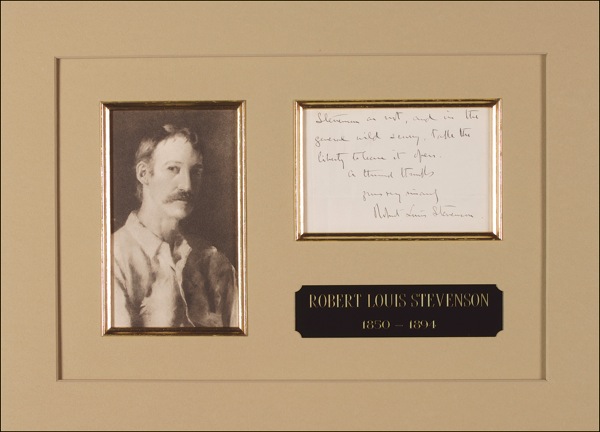 Stevenson or not, and in the
general wild scurry, took the
liberty to leave it open.
A thousand thanks
yours very sincerely
Robert Louis Stevenson
ROBERT LOUIS STEVENSON
1850 – 1894